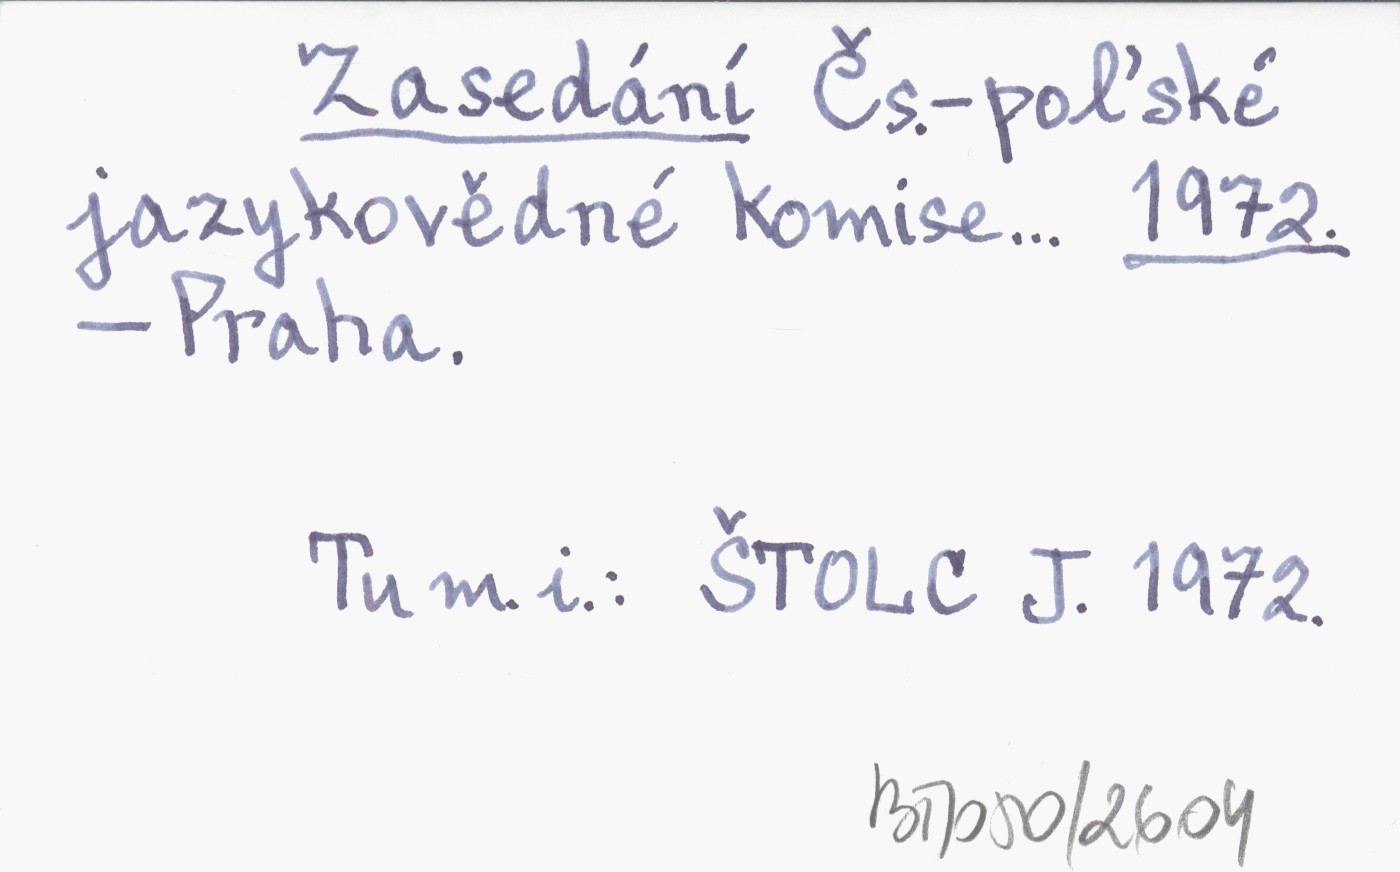 Zasedání Čs.-poľské
jazykovědné komise... 1972.
— Praha.
Tu m. i.: ŠTOLC J. 1972.
/2604